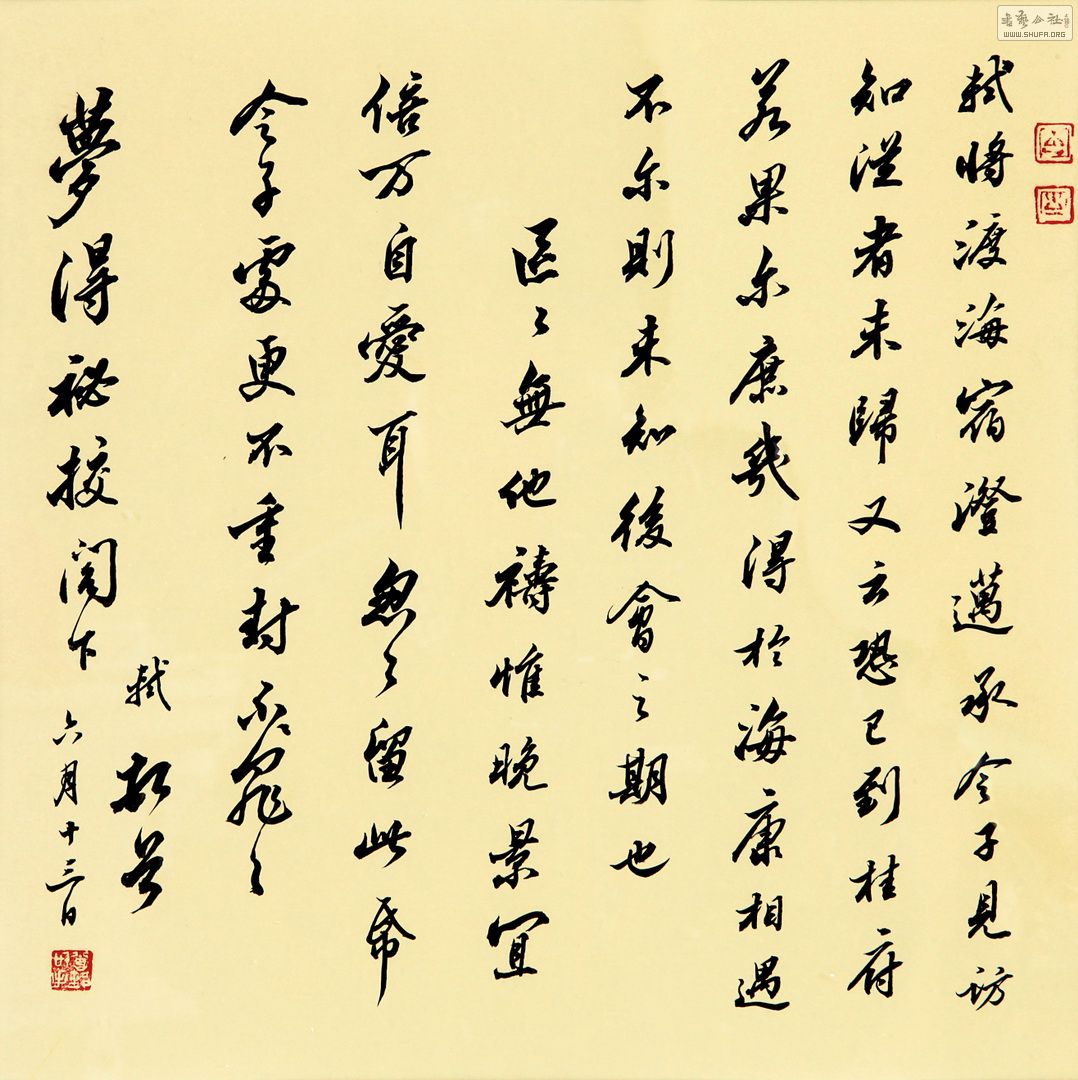 軾將渡海宿澄邁承令子見訪
知從者未歸又云恐已到桂府
若果尔庶幾得於海康相遇
不尔則未知後會之期也
區〻無他禱惟晚景宜
倍万自愛耳忽〻留此帋
令子處更不重封不〻罪〻
軾頓首
夢得祕校閣下
六月十三日
書藝公社
WWW.SHUFA.ORG